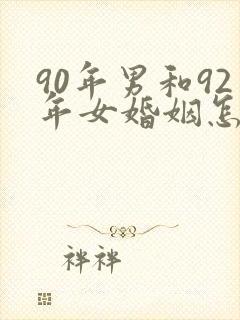 90年男和92
年女婚姻怎
祥祥